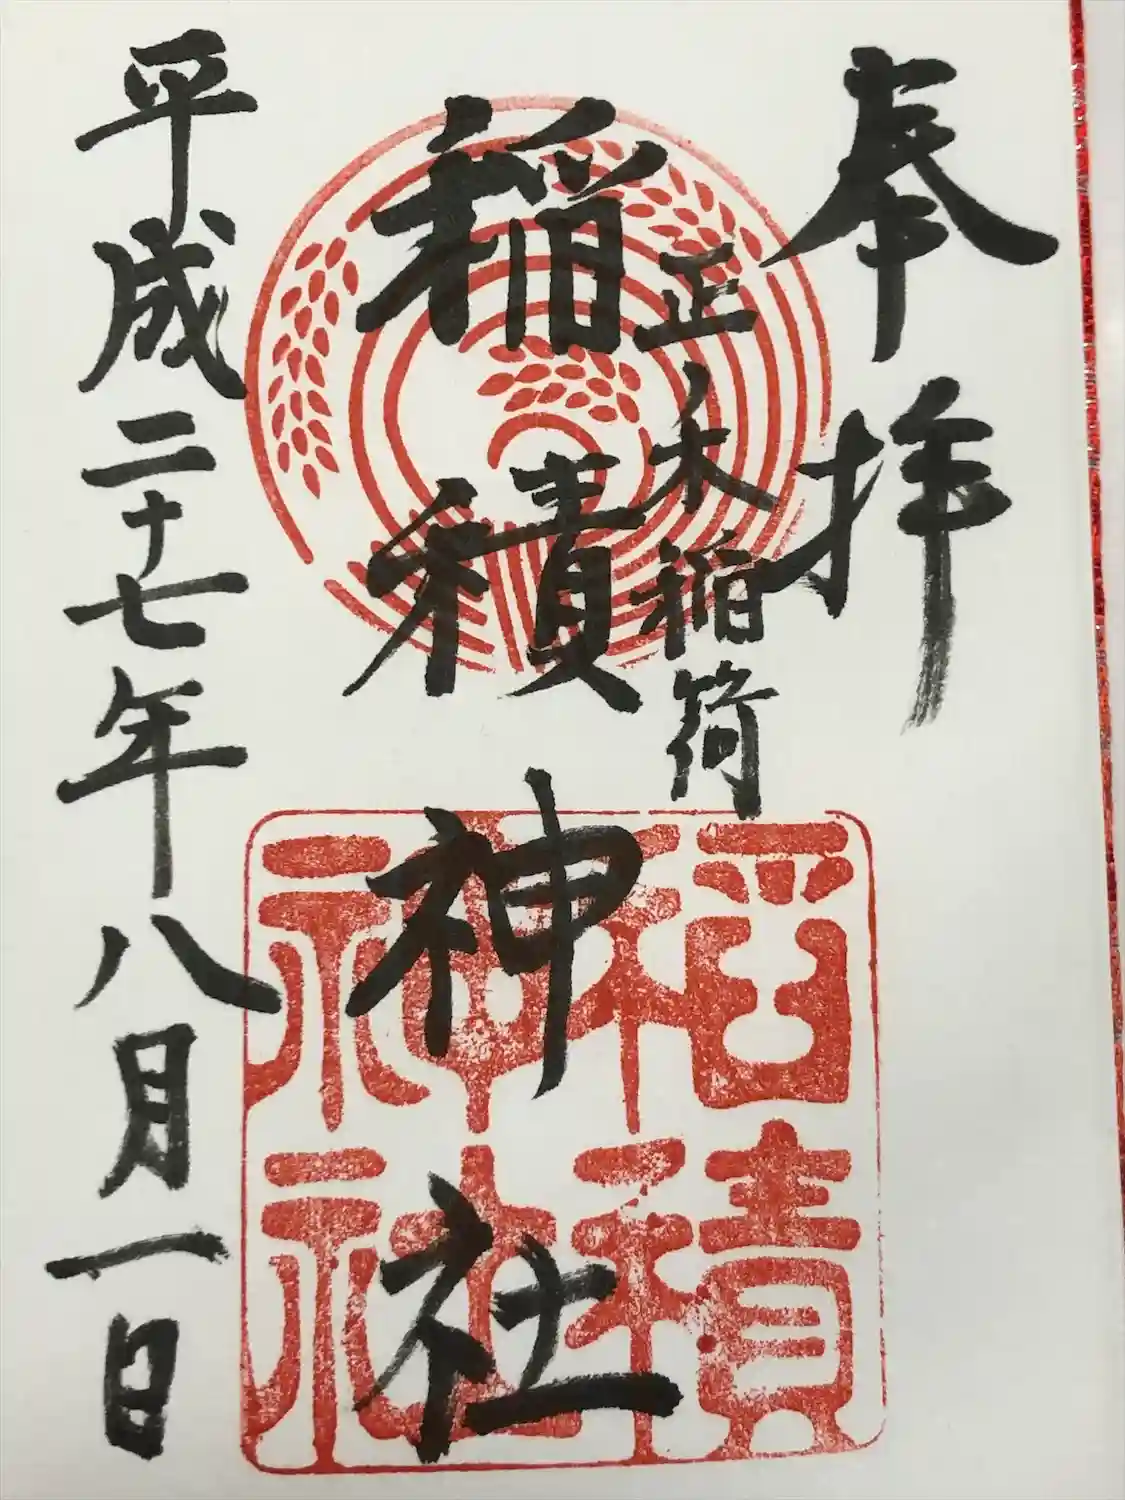 奉拝
正木稲荷
稲積神社
平成二十七年八月一日
稲積
神社